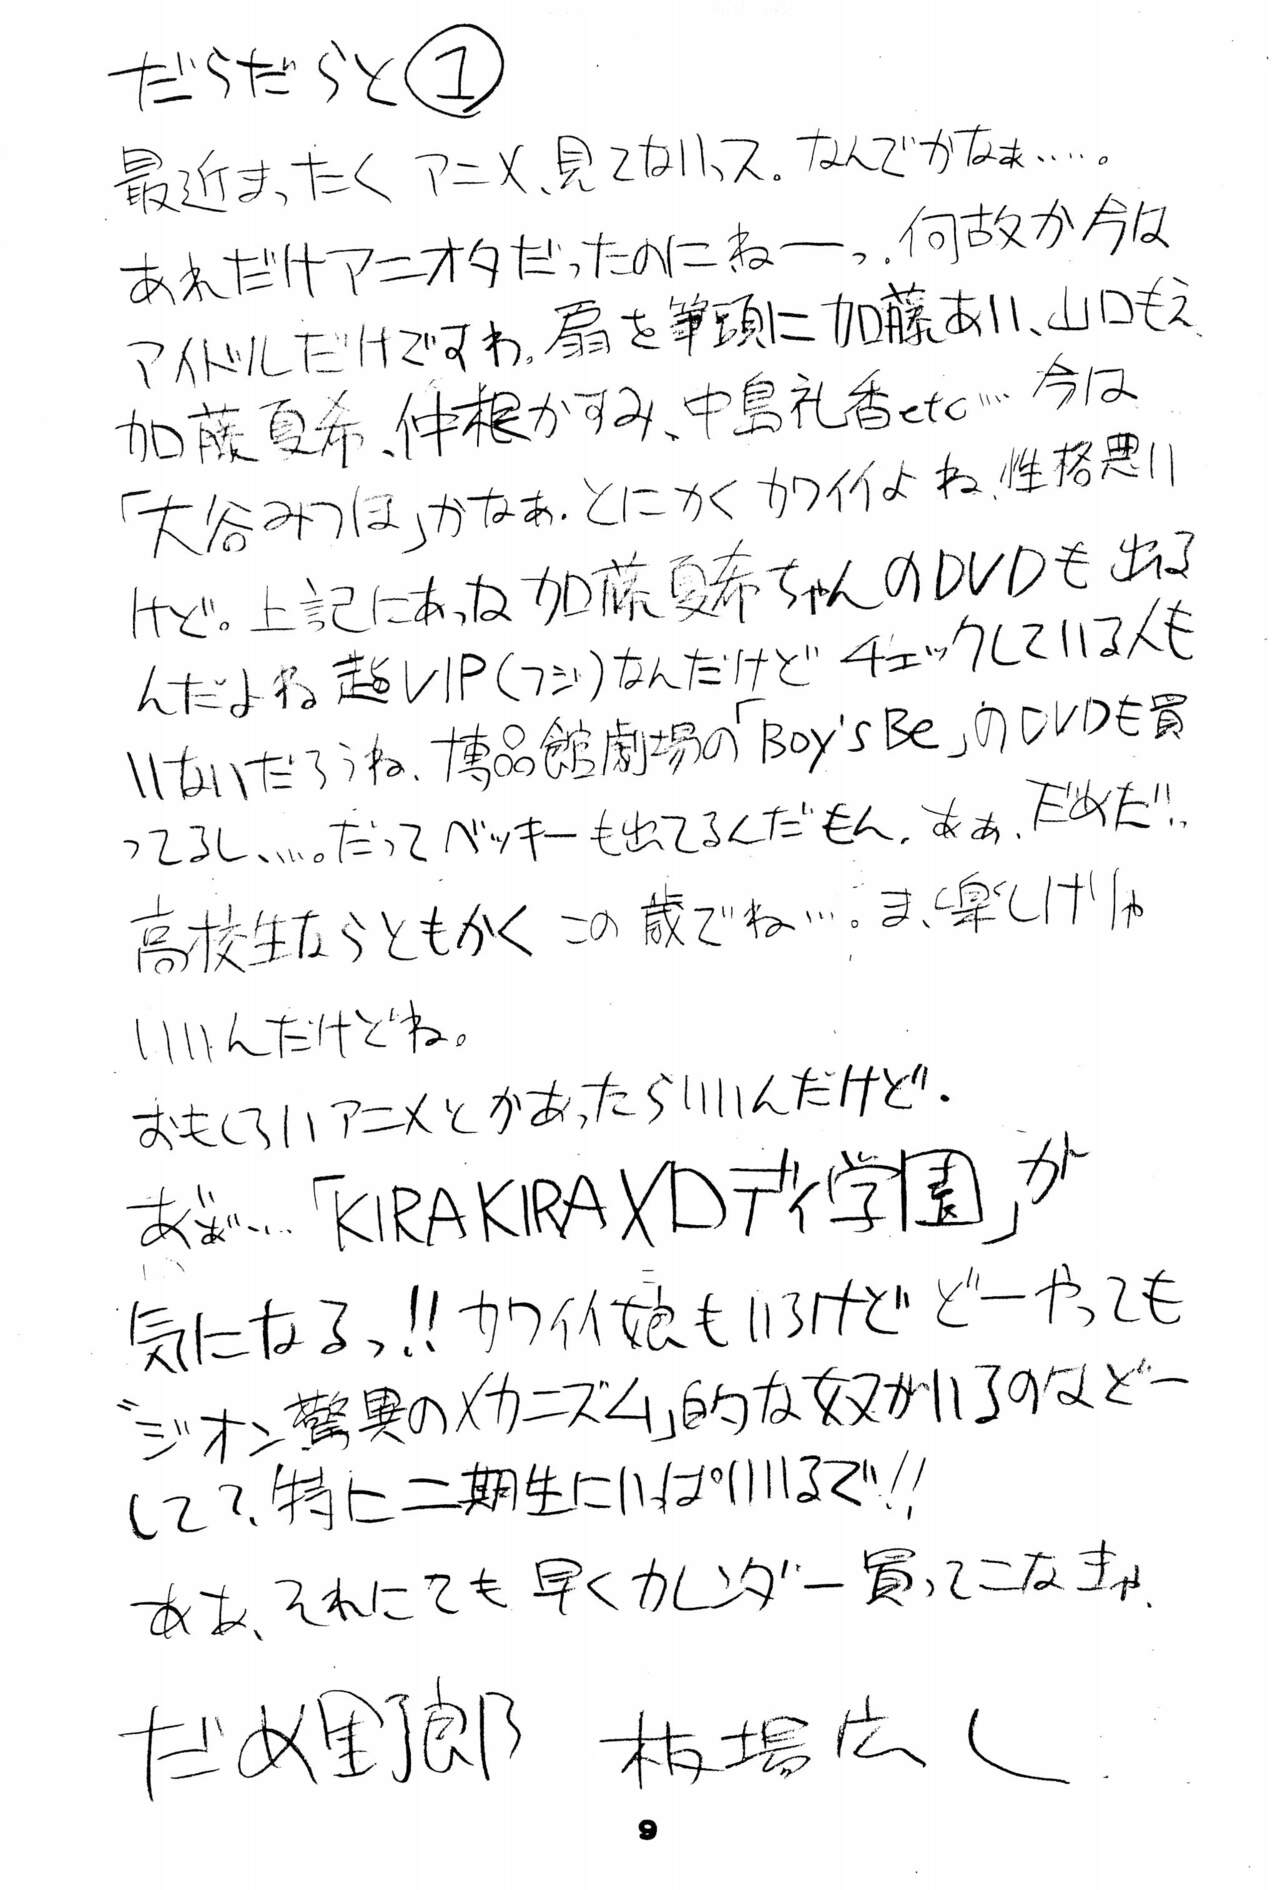 だらだらと①
最近まったくアニメ、見てないっス。なんでかなぁ……。
あれだけアニオタだったのにねーっ。何故か今は
アイドルだけですわ。扇を筆頭に加藤あい、山口もえ、
加藤夏希、仲根かすみ、中島礼香etc…今は
「大谷みつほ」かなぁ。とにかくカワイイよね、性格悪い
けど。上記にあった加藤夏希ちゃんのDVDも出る
んだよね超VIP(フジ)なんだけどチェックしている人も
いないだろうね、博品館劇場の「Boy'sBe」のDVDも買
ってるし、…。だってベッキーも出てるんだもん。あぁ、だめだ!!
高校生ならともかくこの歳でね…。ま、楽しけりゃ
いいんだけどね。
おもしろいアニメとかあったらいいんだけど。
あ゛ぁ゛…「KIRAKIRAXDディ学園」が
気になるっ!!カワイイ娘もいるけどどーやっても
〝ジオン驚異のメカニズム」的な奴がいるのなどー
して?、特に二期生にいぱいいるで!!
ああ、それにても早くカレンダー買ってこなきゃ、
だめ野郎 板場広し
9